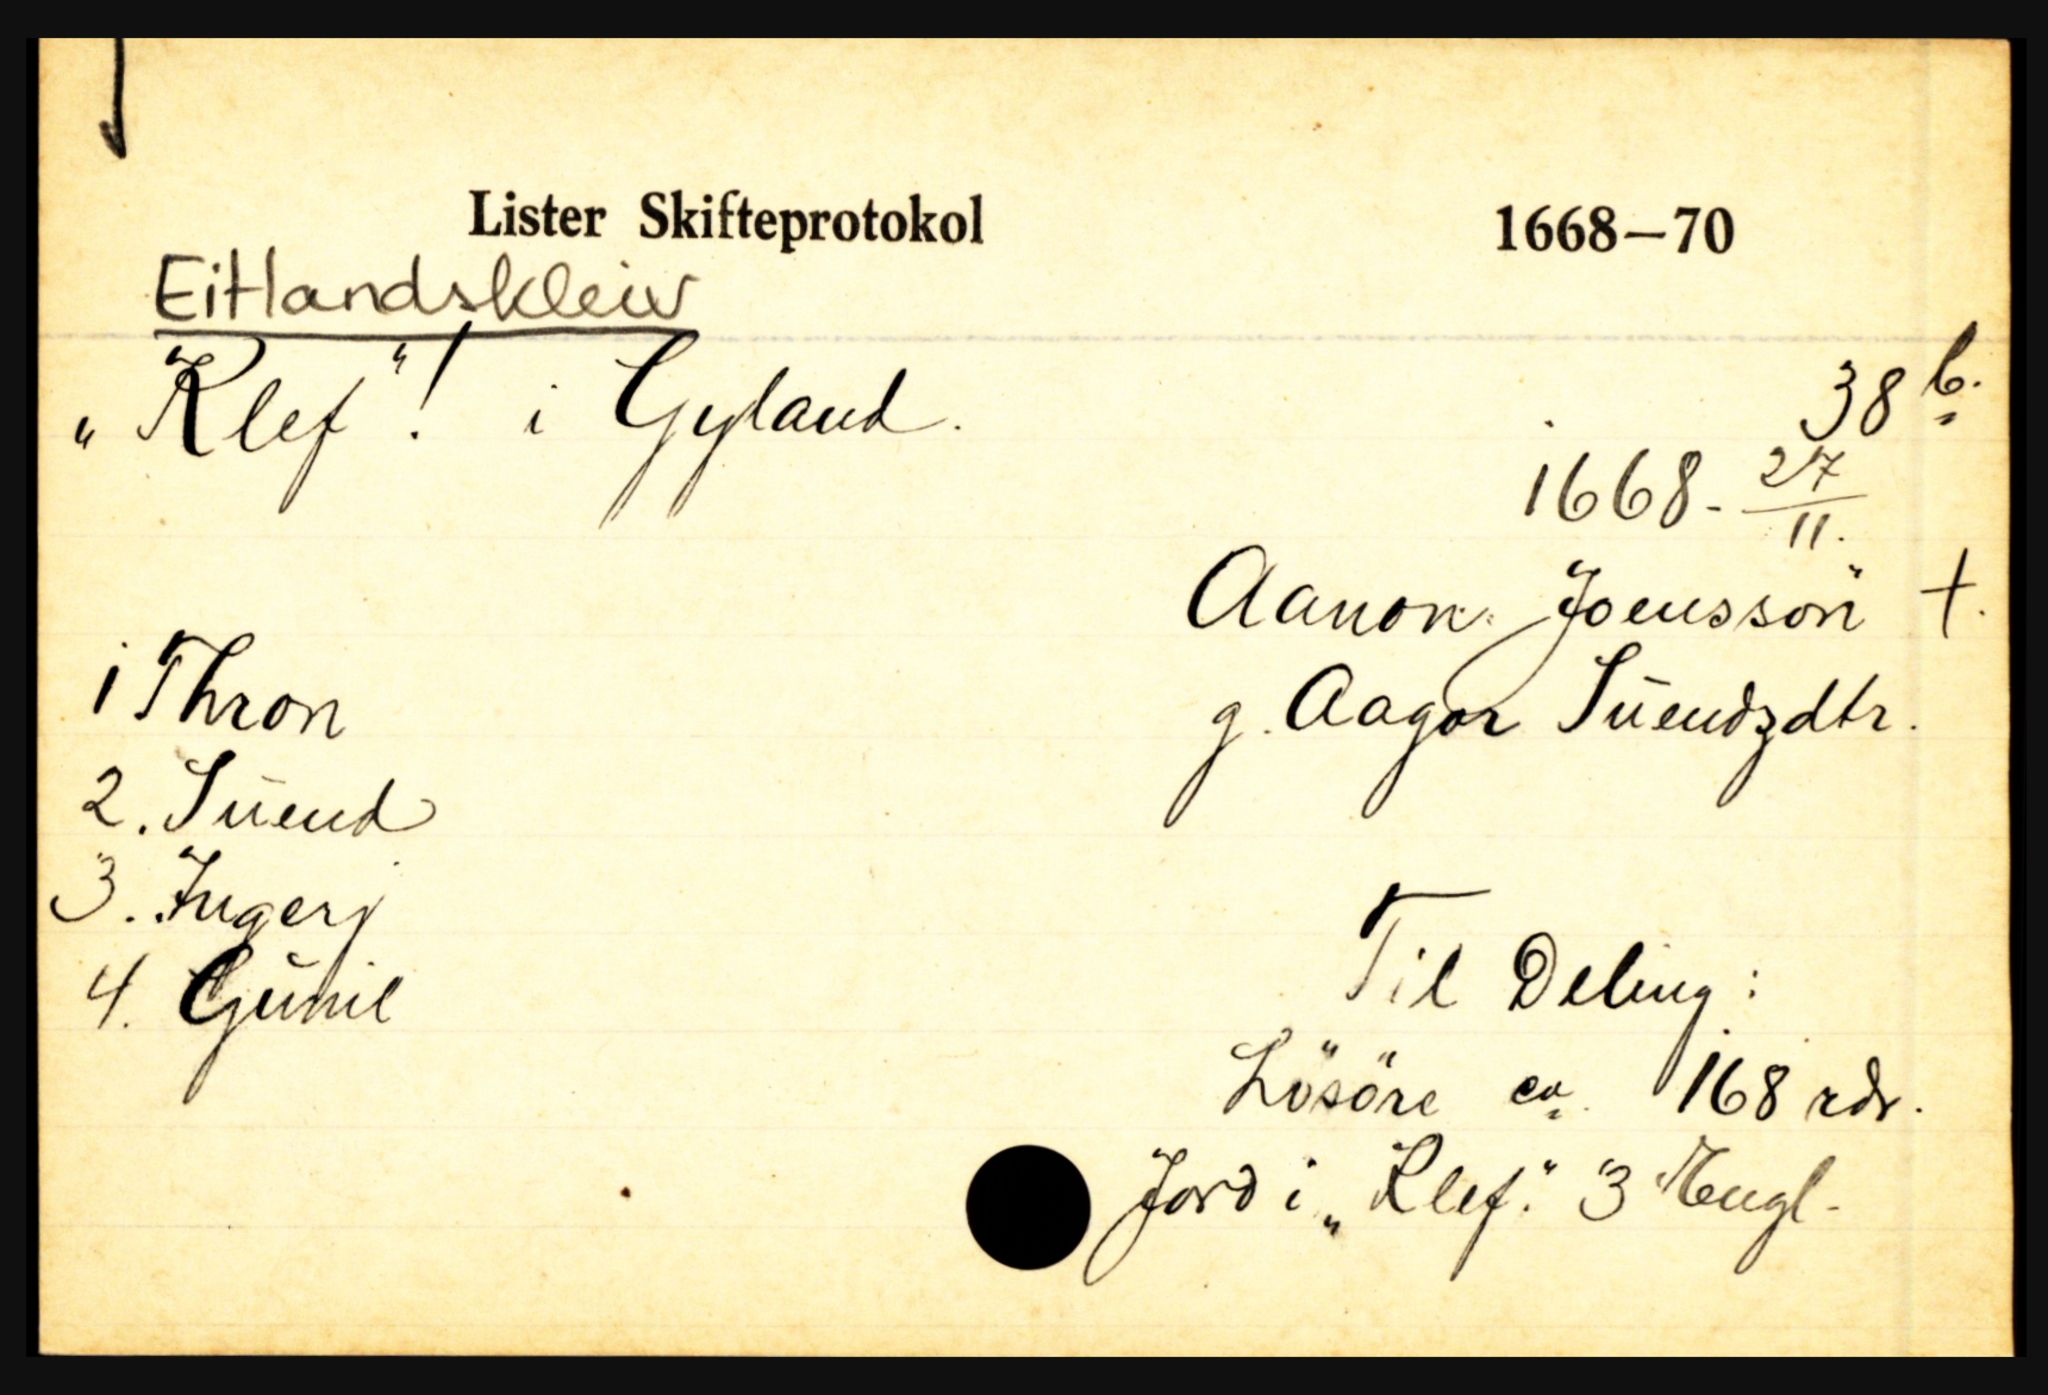 Lister Skifteprotokol 1668—70
Eitlandskleiv
„Klef“! i Gyland.
38 b.
1668 - 27/11.
Aanon Joensson +.
1 Thron
g. Aagor Suendzdtr.
2. Suend
3. Ingerj
4. Gunil
Til Deling:
Lösöre ca. 168 rdr.
Jord i „Klef.“ 3 Engl.